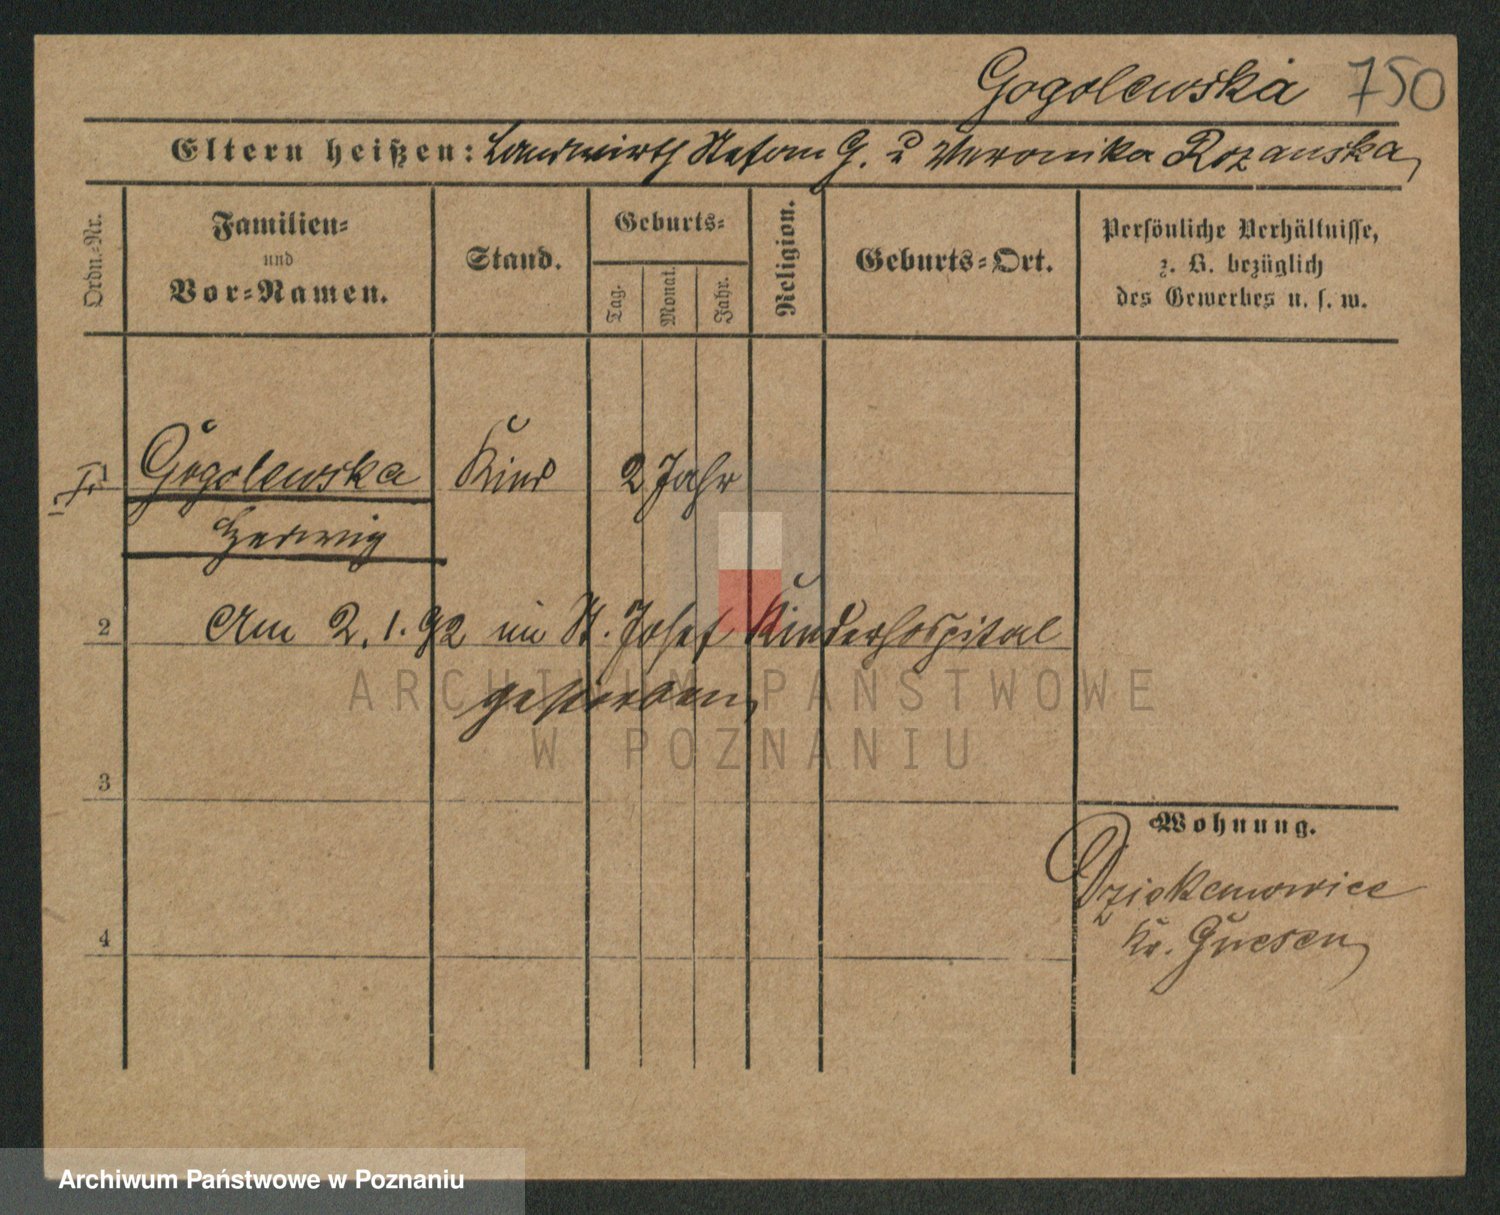 Gogolewska 750
Eltern heißen: Landwirth Stefan G. u Veronika Rozanska
Ordn.-Nr.
Familien-
und
Vor-Namen.
Stand.
Geburts-
Tag.
Monat.
Jahr.
Religion.
Geburts-Ort.
Persönliche Verhältnisse,
z. B. bezüglich
des Gewerbes u. s. w.
1 Gogolewska Kind 2 Jahr
Hedwig
2 Am 2. 1. 92 im St. Josef Kinderhospital
gestorben
3
Wohnung.
Dziekanowice
4
Kr. Gnesen
ARCHIWUM PAŃSTWOWE
W POZNANIU
Archiwum Państwowe w Poznaniu